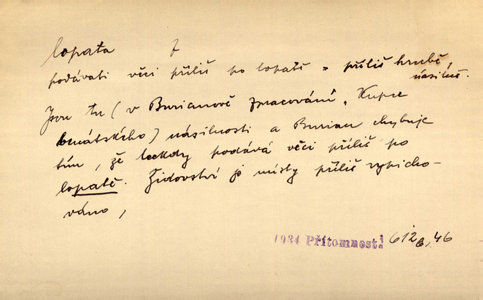 lopata f
podávati věci příliš po lopatě = příliš hrubě,
násilně.
Jsou tu (v Burianově zpracování "Kupce
benátského) násilnosti a Burian chybuje
tím, že leckdy podává věci příliš po
lopatě. Židovství je místy příliš vypicho-
váno,
1934 Přítomnost! 612 46